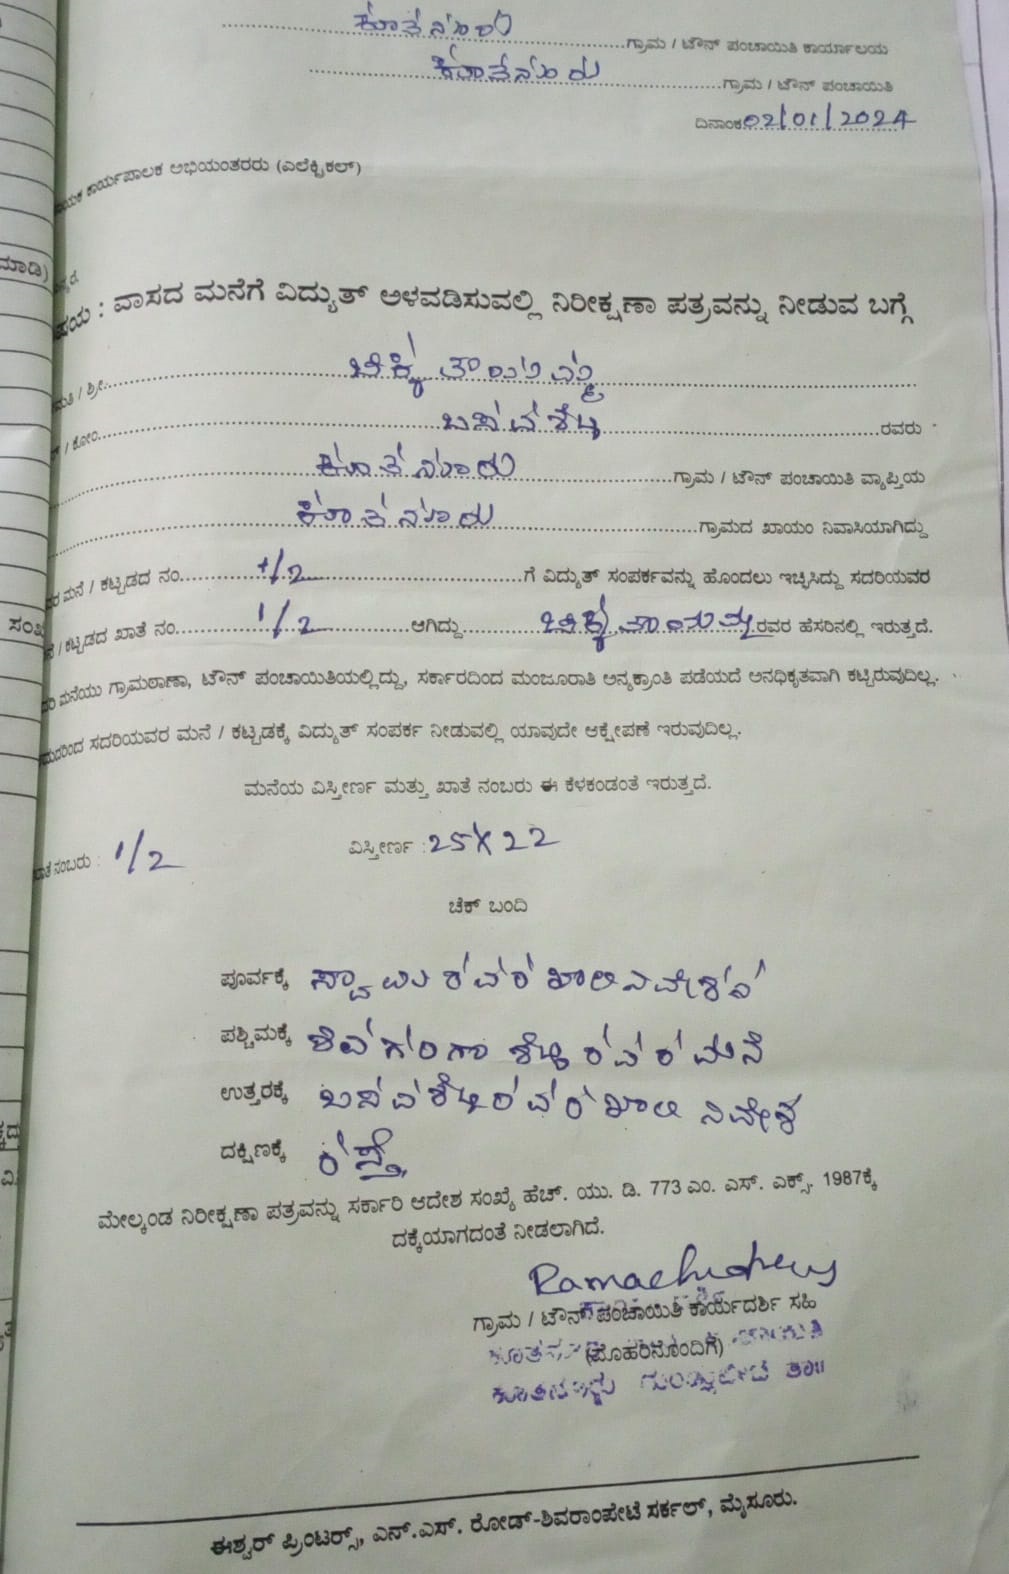 ಕೂತನೂರು ಗ್ರಾಮ / ಟೌನ್ ಪಂಚಾಯಿತಿ ಕಾರ್ಯಾಲಯ
ಕೂತನೂರು ಗ್ರಾಮ / ಟೌನ್ ಪಂಚಾಯಿತಿ
ದಿನಾಂಕ 02/01/2024
ಕಾರ್ಯಪಾಲಕ ಅಭಿಯಂತರರು (ಎಲೆಕ್ಟ್ರಿಕಲ್)
ಮಾಡಿ)
: ವಾಸದ ಮನೆಗೆ ವಿದ್ಯುತ್ ಅಳವಡಿಸುವಲ್ಲಿ ನಿರೀಕ್ಷಣಾ ಪತ್ರವನ್ನು ನೀಡುವ ಬಗ್ಗೆ
/ ಶ್ರೀ. ಚಿಕ್ಕತಾಯಮ್ಮ
/ ಕೋಂ. ಬಸವಶೆಟ್ಟಿ ರವರು
ಕೂತನೂರು ಗ್ರಾಮ / ಟೌನ್ ಪಂಚಾಯಿತಿ ವ್ಯಾಪ್ತಿಯ
ಕೂತನೂರು ಗ್ರಾಮದ ಖಾಯಂ ನಿವಾಸಿಯಾಗಿದ್ದು
ಮನೆ / ಕಟ್ಟಡದ ನಂ. 1/2 ಗೆ ವಿದ್ಯುತ್ ಸಂಪರ್ಕವನ್ನು ಹೊಂದಲು ಇಚ್ಛಿಸಿದ್ದು ಸದರಿಯವರ
/ ಕಟ್ಟಡದ ಖಾತೆ ನಂ. 1/2 ಆಗಿದ್ದು ಚಿಕ್ಕತಾಯಮ್ಮ ರವರ ಹೆಸರಿನಲ್ಲಿ ಇರುತ್ತದೆ.
ಮನೆಯು ಗ್ರಾಮಠಾಣಾ, ಟೌನ್ ಪಂಚಾಯಿತಿಯಲ್ಲಿದ್ದು, ಸರ್ಕಾರದಿಂದ ಮಂಜೂರಾತಿ ಅನ್ಯಕ್ರಾಂತಿ ಪಡೆಯದೆ ಅನಧಿಕೃತವಾಗಿ ಕಟ್ಟಿರುವುದಿಲ್ಲ.
ಸದರಿಯವರ ಮನೆ / ಕಟ್ಟಡಕ್ಕೆ ವಿದ್ಯುತ್ ಸಂಪರ್ಕ ನೀಡುವಲ್ಲಿ ಯಾವುದೇ ಆಕ್ಷೇಪಣೆ ಇರುವುದಿಲ್ಲ.
ಮನೆಯ ವಿಸ್ತೀರ್ಣ ಮತ್ತು ಖಾತೆ ನಂಬರು ಈ ಕೆಳಕಂಡಂತೆ ಇರುತ್ತದೆ.
ನಂಬರು : 1/2 ವಿಸ್ತೀರ್ಣ : 25X22
ಚೆಕ್ ಬಂದಿ
ಪೂರ್ವಕ್ಕೆ ಸ್ವಾಮಿ ರವರ ಖಾಲಿ ನಿವೇಶನ
ಪಶ್ಚಿಮಕ್ಕೆ ಶಿವಗಂಗಾ ಶೆಟ್ಟಿ ರವರ ಮನೆ
ಉತ್ತರಕ್ಕೆ ಬಸವಶೆಟ್ಟಿರವರ ಖಾಲಿ ನಿವೇಶ
ದಕ್ಷಿಣಕ್ಕೆ ರಸ್ತೆ
ಮೇಲ್ಕಂಡ ನಿರೀಕ್ಷಣಾ ಪತ್ರವನ್ನು ಸರ್ಕಾರಿ ಆದೇಶ ಸಂಖ್ಯೆ ಹೆಚ್. ಯು. ಡಿ. 773 ಎಂ. ಎಸ್. ಎಕ್ಸ್. 1987ಕ್ಕೆ
ದಕ್ಕೆಯಾಗದಂತೆ ನೀಡಲಾಗಿದೆ.
ಗ್ರಾಮ / ಟೌನ್ ಪಂಚಾಯಿತಿ ಕಾರ್ಯದರ್ಶಿ ಸಹಿ
(ಮೊಹರಿನೊಂದಿಗೆ)
ಕೂತನೂರು ಗುಂಡ್ಲುಪೇಟೆ ತಾ॥
ಈಶ್ವರ್ ಪ್ರಿಂಟರ್ಸ್, ಎನ್.ಎಸ್. ರೋಡ್-ಶಿವರಾಂಪೇಟೆ ಸರ್ಕಲ್, ಮೈಸೂರು.